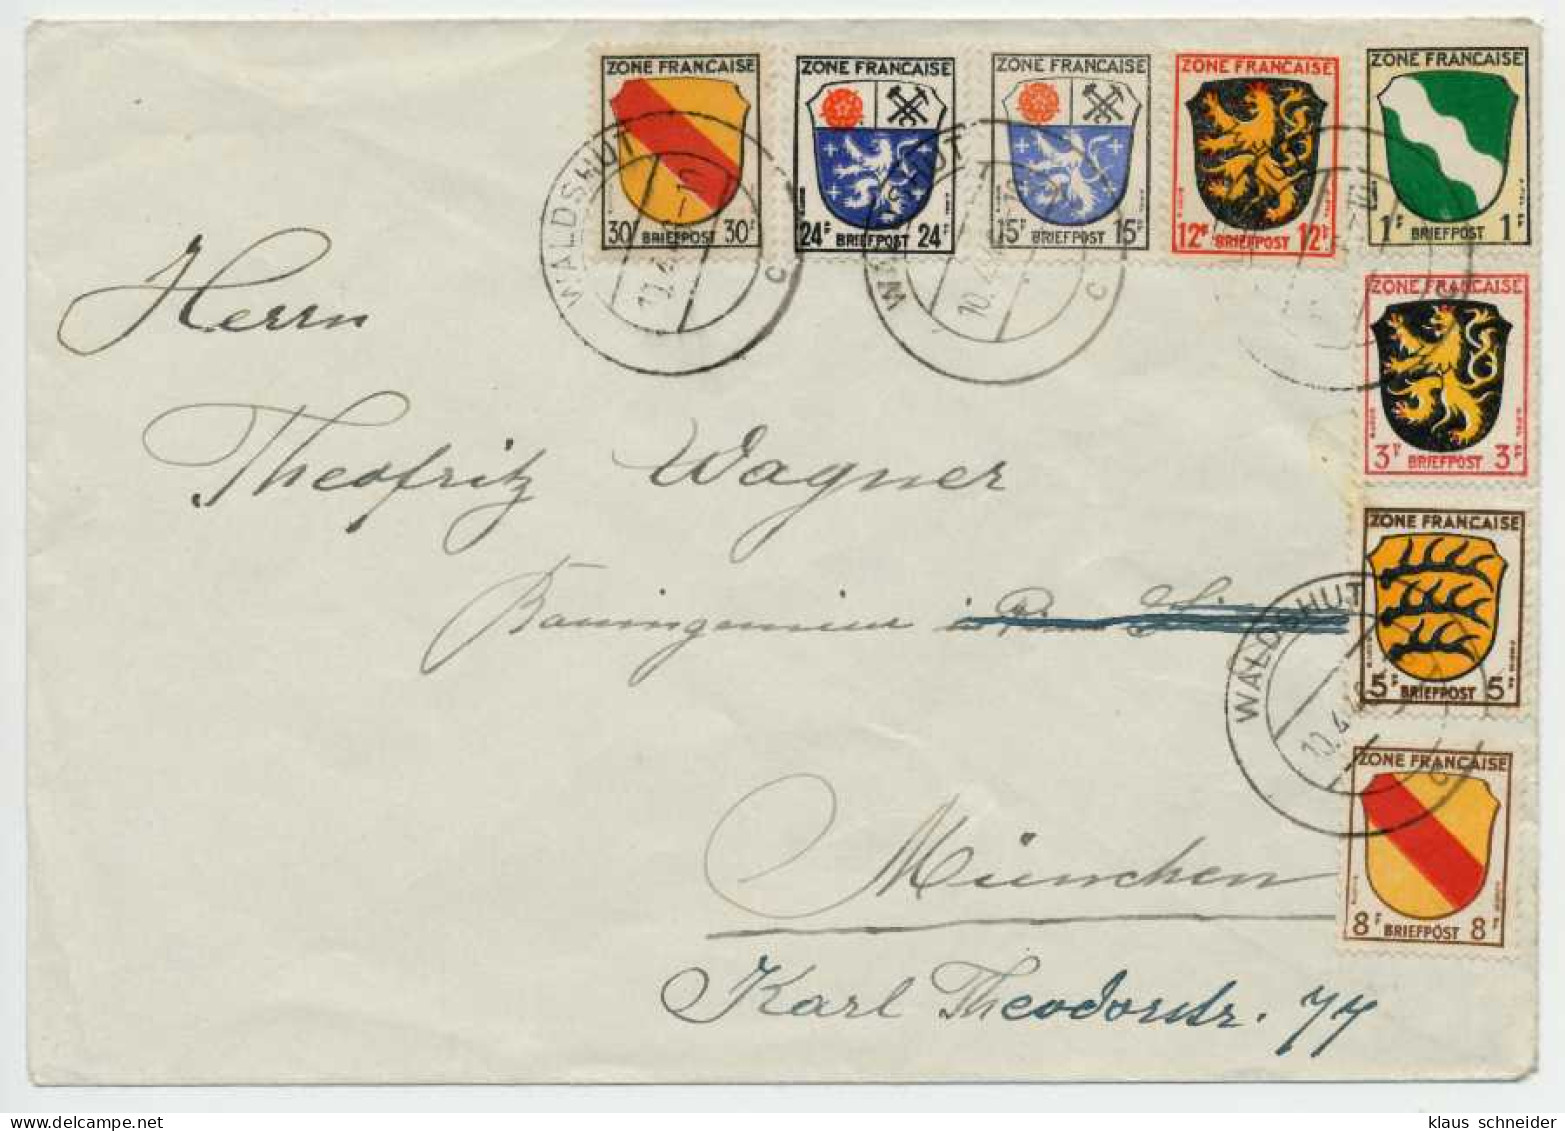 ZONE FRANCAISE
30F BRIEFPOST 30F
ZONE FRANCAISE
24F BRIEFPOST 24F
ZONE FRANCAISE
15F BRIEFPOST 15F
ZONE FRANCAISE
12F BRIEFPOST 12F
ZONE FRANCAISE
1F BRIEFPOST 1F
ZONE FRANCAISE
3F BRIEFPOST 3F
ZONE FRANCAISE
5F BRIEFPOST 5F
ZONE FRANCAISE
8F BRIEFPOST 8F
WALDSHUT
10.4
c
10.4
c
WALDSHUT
10.4
c
Herrn
Theofritz Wagner
Bauingenieur
München
Karl Theodorstr. 77
klaus schneider